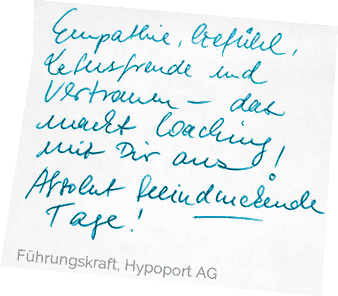 Empathie, Gefühl,
Lebensfreude und
Vertrauen – das
macht Coaching
mit Dir aus!
Absolut beeindruckende
Tage!
Führungskraft, Hypoport AG